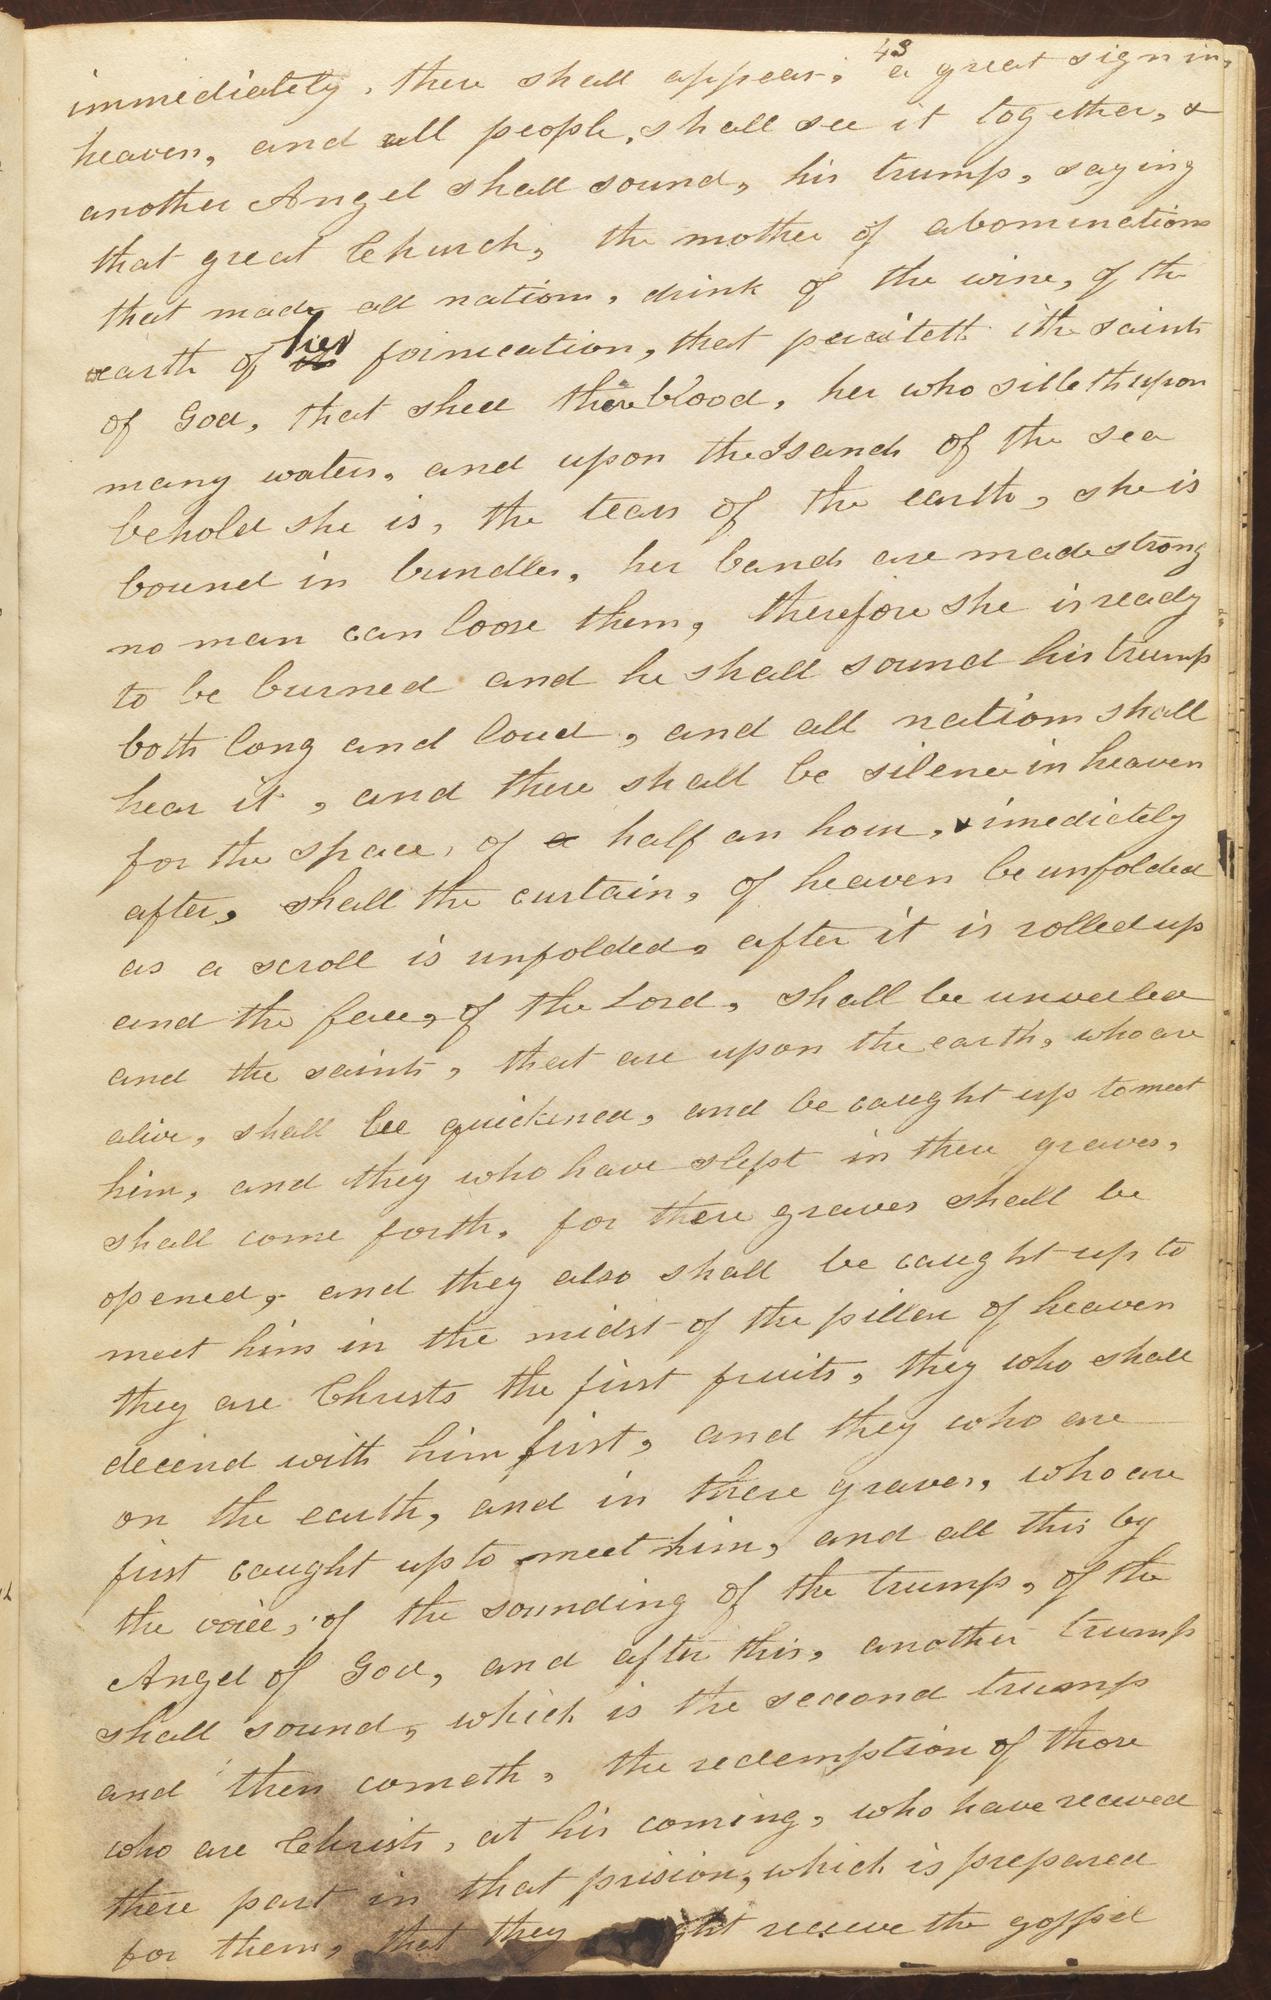 43
immediately, there shall appear; a great sign in,
heaven, and all people, shall see it together, &
another Angel shall sound, his trump, saying
that great Church, the mother of abominations
that made all nations, drink of the wine, of the
earth of her fornication, that persitett the saints
of God, that shed there blood, her who sitteth upon
many waters, and upon the Isands of the sea
behold she is, the tears of the earth, she is
bound in bundles, her bands are made strong
no man can loose them, therefore she is ready
to be burned and he shall sound his trump
both long and loud, and all nations shall
hear it, and there shall be silence in heaven
for the space, of a half an hour, & imediately
after, shall the curtain, of heaven be unfolded
as a scroll is unfolded, after it is rolled up
and the face, of the Lord, shall be unveiled
and the saints, that are upon the earth, who are
alive, shall be quickened, and be caught up to meet
him, and they who have slept in there graves,
shall come forth, for there graves shall be
opened, and they also shall be caught up to
meet him in the midst of the piller of heaven
they are Christs the first fruits, they who shall
decend with him first, and they who are
on the earth, and in there graves, who are
first caught up to meet him, and all this by
the voice, of the sounding of the trump, of the
Angel of God, and after this, another trump
shall sound, which is the second trump
and then cometh, the redemption of those
who are Christs, at his coming, who have received
there part in that prision, which is prepared
for them, that they might receive the gospel